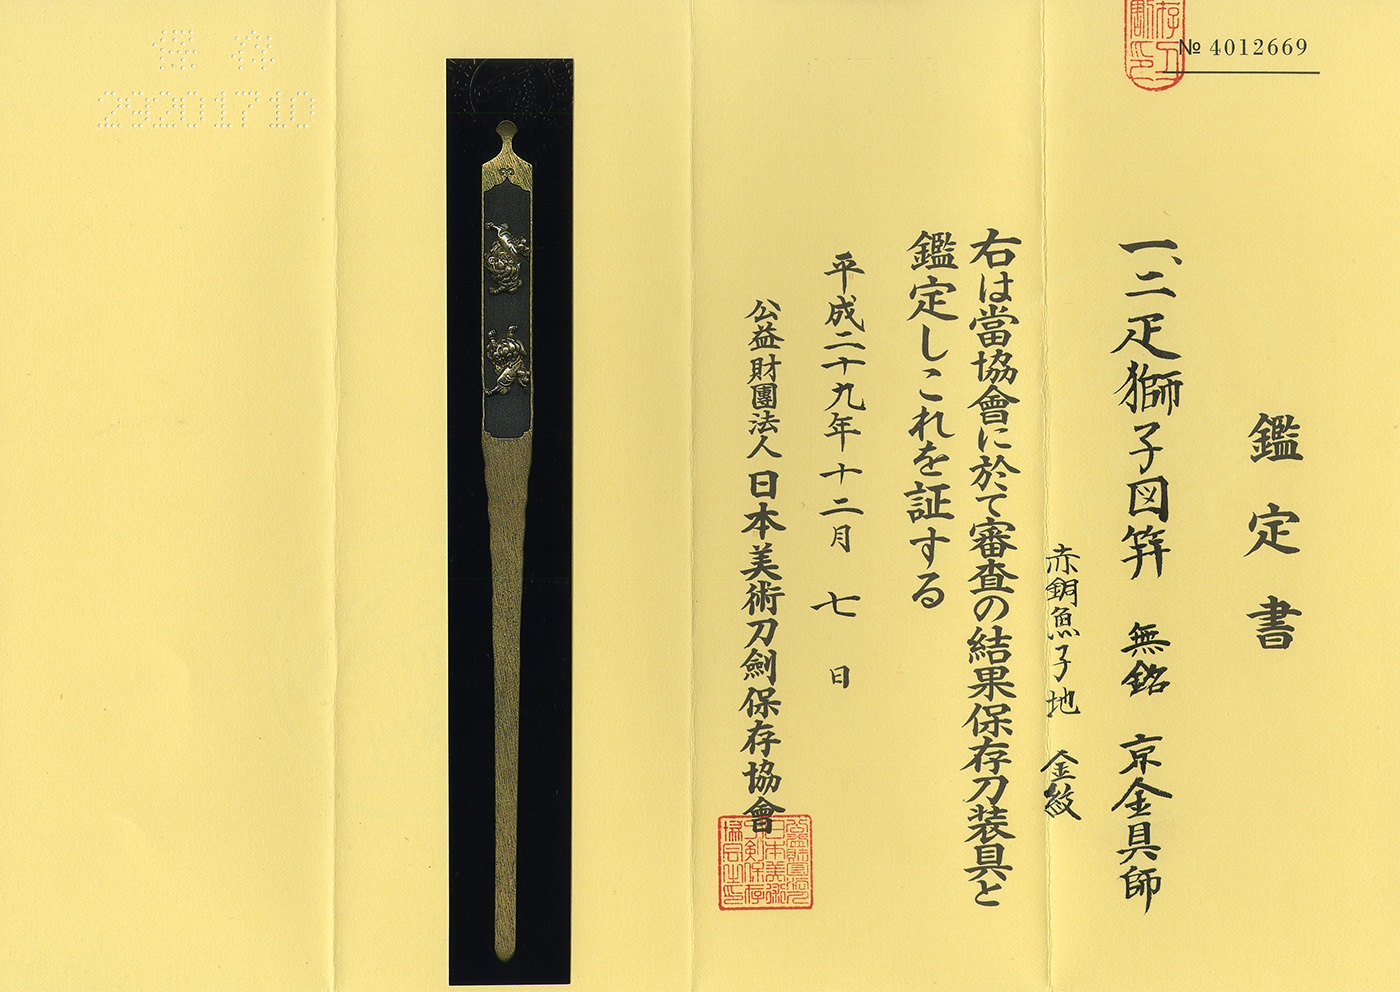 № 4012669
鑑定書
一、二疋獅子図笄 無銘 京金具師
赤銅魚子地 金紋
右は當協會に於て審査の結果保存刀装具と
鑑定しこれを証する
平成二十九年十二月 七 日
公益財團法人 日本美術刀劍保存協會
保存
29201710